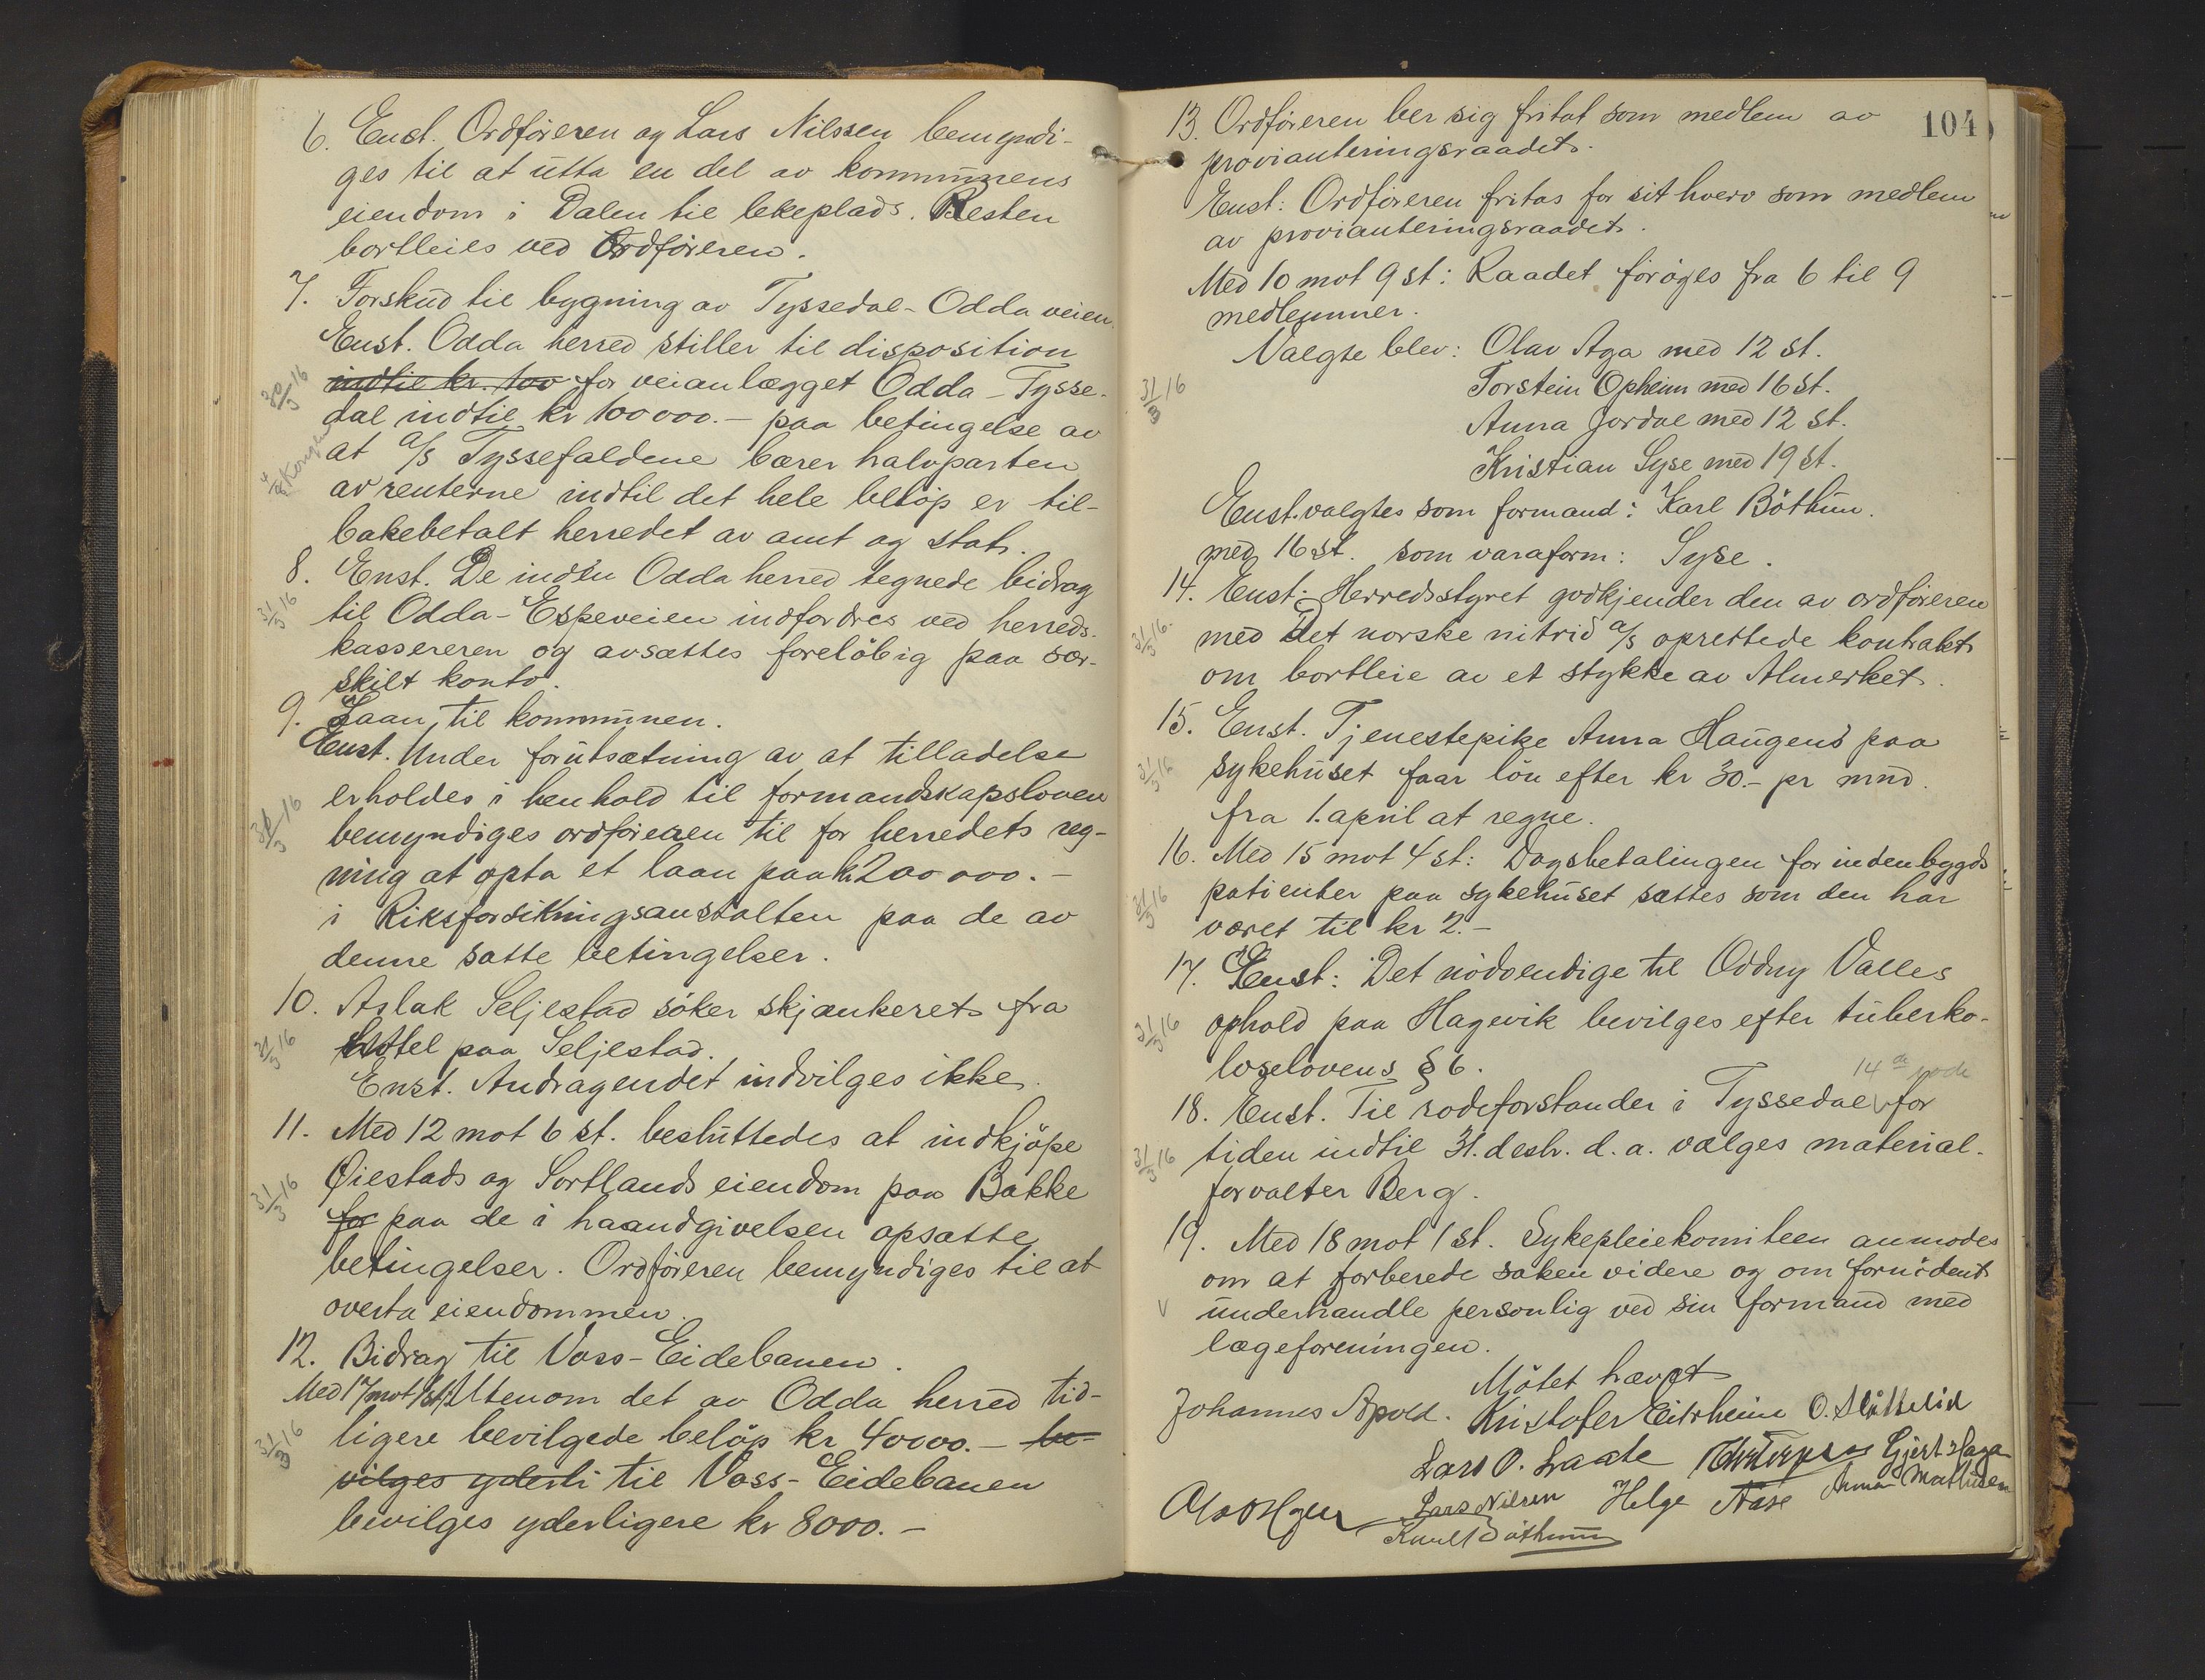 6. Enst. Ordföreren og Lars Nilssen bemyndi-
ges til at utta en del av kommunens
eiendom i Dalen til lekeplads. Resten
bortleies ved Ordföreren.
7. Forskud til bygning av Tyssedal-Odda veien.
Enst. Odda herred stiller til disposition
indtil kr. 100 for veianlægget Odda-Tysse-
30/3 16
dal indtil kr 100000.- paa betingelse av
at a/s Tyssefaldene bærer halvparten
av renterne indtil det hele belöp er til-
bakebetalt herredet av amt og stat.
8. Enst. De inden Odda herred tegnede bidrag
31/3 16
til Odda-Espeveien indfordres ved herreds-
kassereren og avsættes foreløbig paa sær-
skilt konto.
9. Laan til kommunen.
Enst. Under forutsætning av at tilladelse
erholdes i henhold til formandskapsloven
31/3 16
bemyndiges ordföreren til for herredets reg-
ning at opta et laan paa kr 200000.-
i Riksforsikringsanstalten paa de av
denne satte betingelser.
10. Aslak Seljestad söker skjænkeret fra
31/3 16
hotel paa Seljestad.
Enst. Andragendet indvilges ikke.
11. Med 12 mot 6 st. besluttedes at indkjöpe
31/3 16
Øiestads og Sortlands eiendom paa Bakke
for paa de i haandgivelsen opsatte
betingelser. Ordföreren bemyndiges til at
overta eiendommen.
12. Bidrag til Voss-Eidebanen.
Med 17 mot 1 st. Utenom det av Odda herred tid-
31/3 16
ligere bevilgede belöp kr 40000.- be-
vilges yderli til Voss-Eidebanen
bevilges yderligere kr 8000.-
104
13. Ordföreren ber sig fritat som medlem av
provianteringsraadet.
Enst: Ordföreren fritas for sit hverv som medlem
av provianteringsraadet.
Med 10 mot 9 st: Raadet foröges fra 6 til 9
medlemmer.
Valgte blev: Olav Aga med 12 st.
31/3 16
Torstein Opheim med 16 st.
Anna Jordal med 12 st.
Kristian Syse med 19 st.
Enst. valgtes som formand: Karl Böthun.
med 16 st. som varaform: Syse.
14. Enst: Herredsstyret godkjender den av ordföreren
31/3 16.
med Det norske nitrid a/s oprettede kontrakt
om bortleie av et stykke av Almerket.
15. Enst. Tjenestepike Anna Haugens paa
31/3 16
sykehuset faar lön efter kr 30.- pr mnd.
fra 1. april at regne.
16. Med 15 mot 4 st: Dagsbetalingen for indenbygds
31/3 16
patienter paa sykehuset sættes som den har
været til kr 2.-
17. Enst: Det nödvendige til Oddny Valles
31/3 16
ophold paa Hagevik bevilges efter tuberko-
loselovens § 6.
14de rode
18. Enst. Til rodeforstander i Tyssedal for
31/3 16
tiden indtil 31. desbr. d. a. vælges material-
forvalter Berg.
19. Med 18 mot 1 st. Sykepleiekomiteen anmodes
om at forberede saken videre og om fornödent
V underhandle personlig ved sin formand med
lægeforeningen.
Mötet hævet
Johannes Apold. Kristofer Eitrheim O. Slåttelid
Lars O. Gjert Haga
Lars Nilsen Helge Aase Anna Mathisen
Karl Böthun